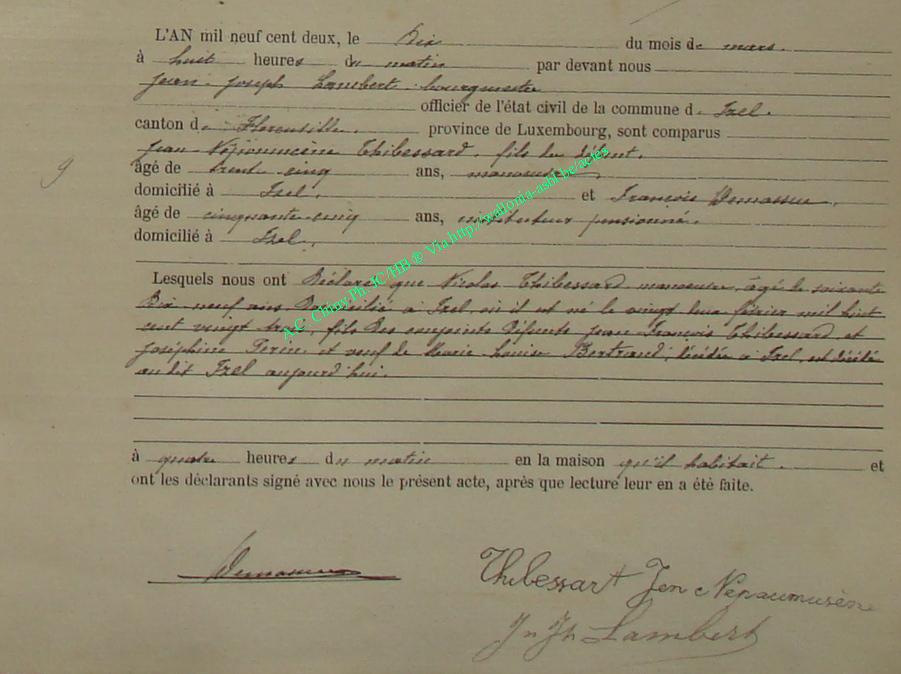 L'AN mil neuf cent deux, le Dix du mois de mars.
à huit heures du matin par devant nous
Jean Joseph Lambert bourgmestre
officier de l'état civil de la commune d. Izel.
canton de Florenville. province de Luxembourg, sont comparus
Jean Népomucène Thibessard, fils du défunt.
9
âgé de trente cinq ans, manoeuvre
domicilié à Izel. et François Demasseu
âgé de cinquante cinq ans, instituteur pensionné.
domicilié à Izel.
Lesquels nous ont Déclaré que Nicolas Thibessard manoeuvre, âgé de soixante
Dix neuf ans Domicilié à Izel, où il est né le vingt deux février mil huit
cent vingt trois, fils Des conjoints Défunts Jean François Thibessard, et
Joséphine Perin, et veuf de Marie Louise Bertrand, décédée à Izel, est décédé
au dit Izel aujourd'hui.
à quatre heures du matin en la maison qu'il habitait. et
ont les déclarants signé avec nous le présent acte, après que lecture leur en a été faite.
Thibessart Jen Nepaumusène
Jn Jh Lambert
A.C. Chiny Ph. JC/HB ® Via http://wallonia-asbl.be/actes